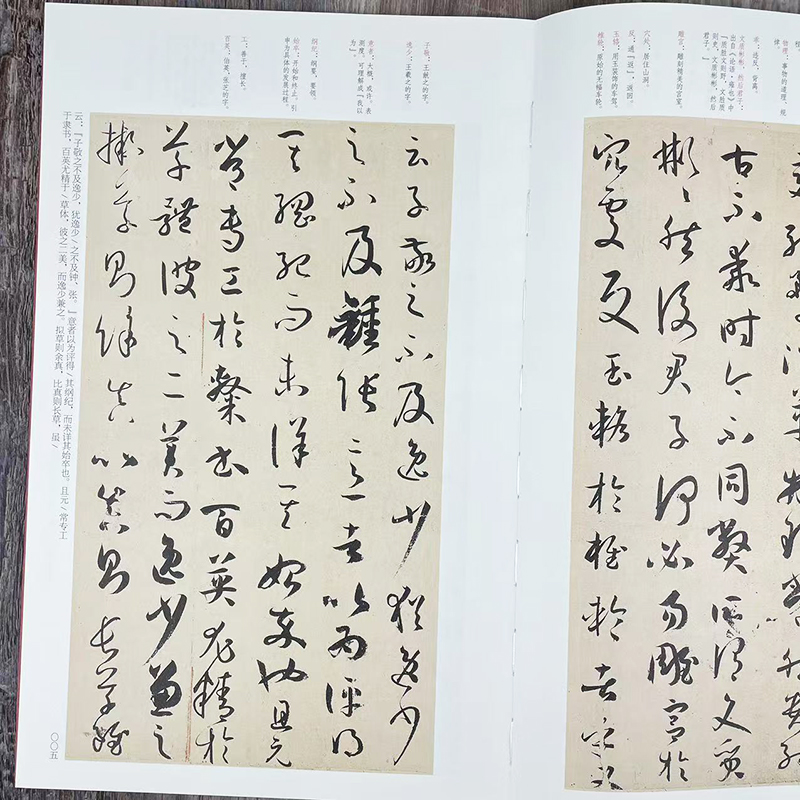 物理：事物的道理、规
律。
乖：违反、背离。
文质彬彬，然后君子：
出自《论语·雍也》中
「质胜文则野，文胜质
则史，文质彬彬，然后
君子。」
雕宫：雕刻精美的宫室。
穴处：居住山洞。
反：通「返」，返回。
玉辂：用玉装饰的车驾。
椎轮：原始的无辐车轮。
古不乖時今不同弊所謂文質
彬彬然後君子何必易雕宮於
穴處反玉輅於椎輪者乎又
子敬：王献之的字。
逸少：王羲之的字。
意者：大概，或许。表
测度，可理解成「我以
为」。
纲纪：纲要、要领。
始卒：开始和终止，引
申为具体的发展过程。
工：善于，擅长。
百英：伯英，张芝的字。
云子敬之不及逸少猶逸少
之不及鍾張意者以為評得
其綱紀而未詳其始卒也且元
常專工於隸書百英尤精於
草體彼之二美而逸少兼之
擬草則餘真比真則長草雖
云：「子敬之不及逸少，犹逸少/之不及钟、张。」意者以为评得/其纲纪，而未详其始卒也。且元/常专工
于隶书，百英尤精于/草体，彼之二美，而逸少兼之。拟草则余真，比真则长草，虽/
〇〇五